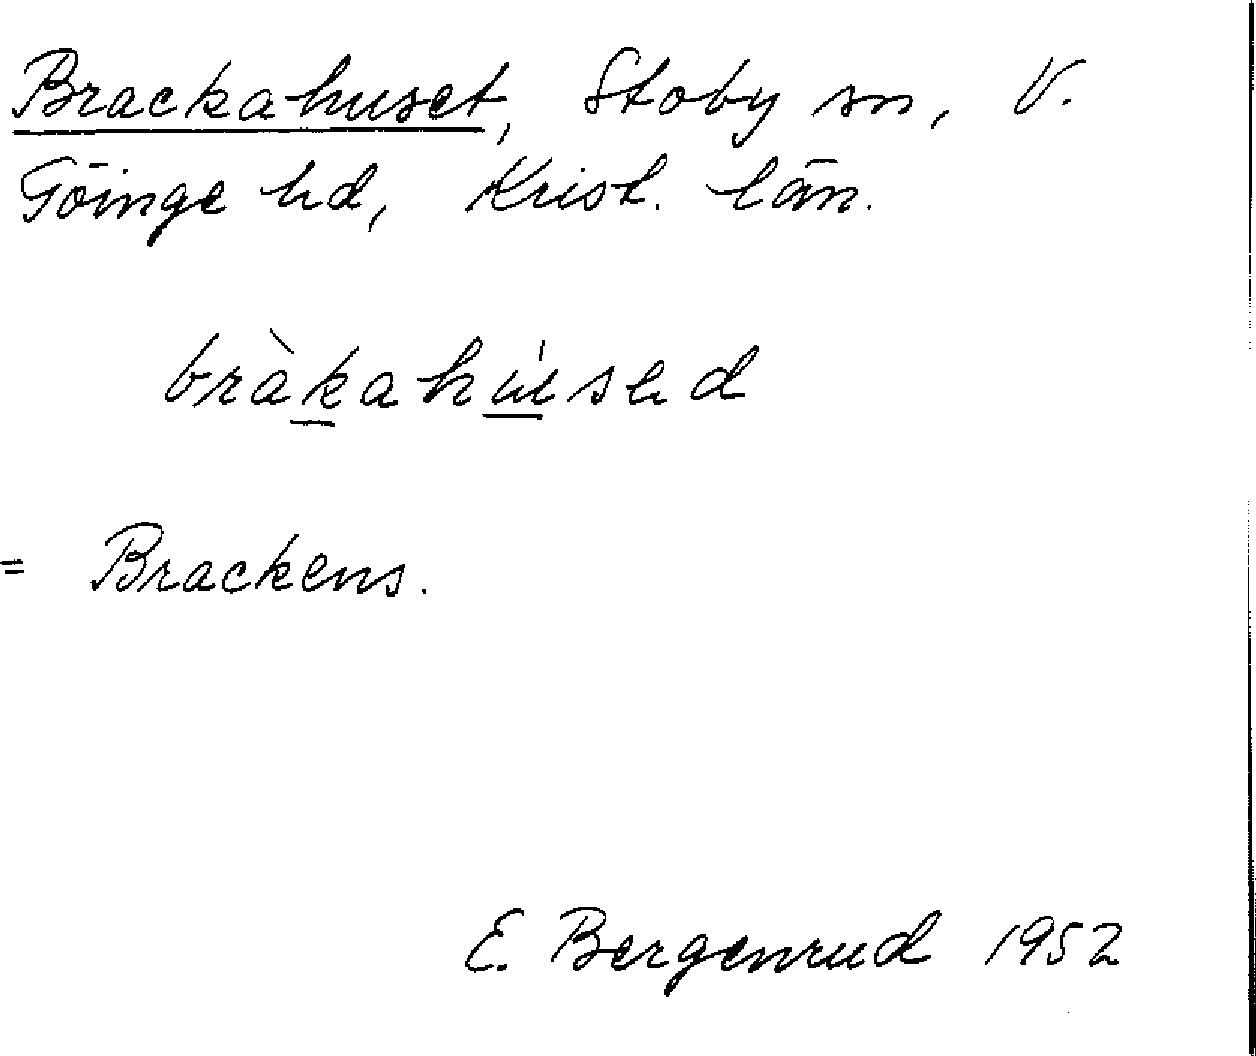 Brackahuset, Stoby sn, V.
Göinge hd, Krist. län.
bràkahúsed
= Brackens.
E. Bergenrud 1952